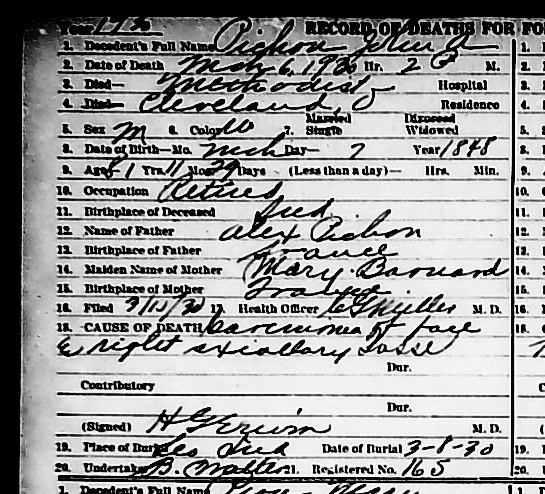 Year 1930 RECORD OF DEATHS FOR FO
1. Decedent's Full Name Pichon John A 1.
2. Date of Death Mch 6, 1930 Hr. 2 P M. 2.
3. Died— Methodist Hospital 3.
4. Died— Cleveland, O Residence 4.
Married Divorced
5. Sex M 6. Color W 7. Single Widowed 5.
8. Date of Birth—Mo. Mch Day— 7 Year 1848 8.
9. Age 81 Yrs. 11 Mos. 29 Days (Less than a day)— Hrs. Min. 9.
10. Occupation Retired 10.
11. Birthplace of Deceased Ind 11.
12. Name of Father Alex Pichon 12.
13. Birthplace of Father France 13.
14. Maiden Name of Mother Mary Barnard 14.
15. Birthplace of Mother France 15.
16. Filed 3/10/30 17. Health Officer M. D. 16.
18. CAUSE OF DEATH Carcinoma of face 18.
& right axiallary fossa
Dur.
Contributory
Dur.
(Signed) H G Erwin M. D.
19. Place of Burial Leo Ind Date of Burial 3-8-30 19.
20. Undertaker 21. Registered No. 165 20.
1. Decedent's Full Name 1.